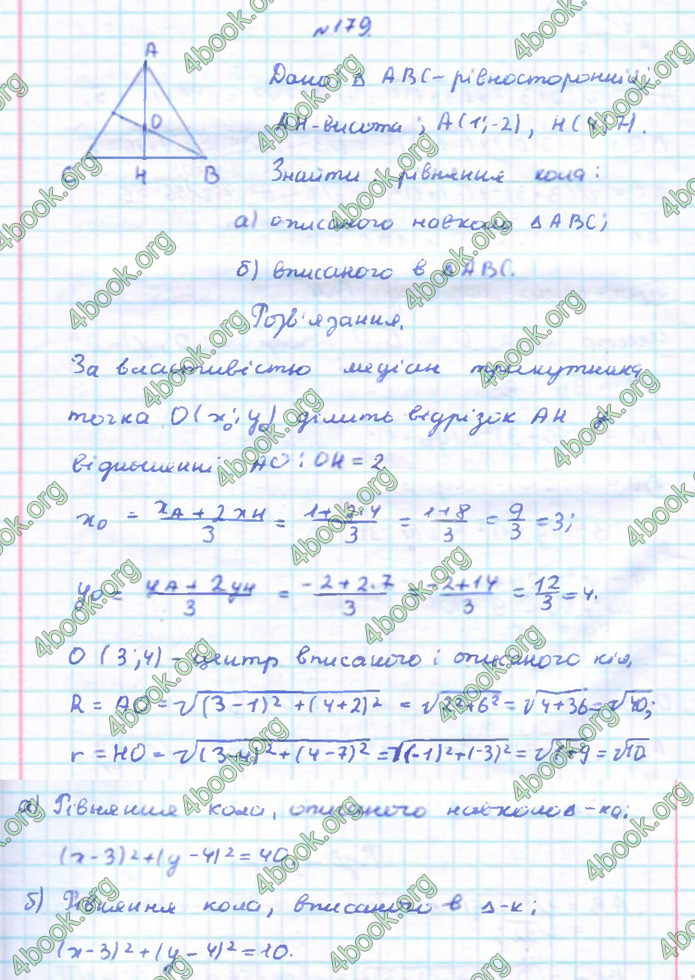 №179.
A
O
C H B
Дано: Δ ABC - рівносторонній;
AH - висота; A(1;-2), H(4;7).
Знайти: рівняння кола:
а) описаного навколо ΔABC;
б) вписаного в ΔABC.
Розв'язання.
За властивістю медіан трикутника
точка O(x₀; y₀) ділить відрізок AH у
відношенні AO:OH = 2
x₀ = (xA + 2xH)/3 = (1+2·4)/3 = (1+8)/3 = 9/3 = 3;
y₀ = (yA + 2yH)/3 = (-2+2·7)/3 = (-2+14)/3 = 12/3 = 4.
O (3;4) - центр вписаного і описаного кіл,
R = AO = √((3-1)²+(4+2)²) = √(2²+6²) = √(4+36) = √40;
r = HO = √((3-4)²+(4-7)²) = √((-1)²+(-3)²) = √(1+9) = √10
а) Рівняння кола, описаного навколо Δ-ка:
(x-3)²+(y-4)²=40.
б) Рівняння кола, вписаного в Δ-к;
(x-3)²+(y-4)²=10.
4book.org